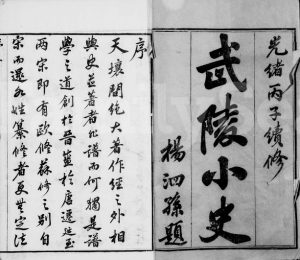 光緒丙子續修
武陵小史
楊泗孫題
序
天壤間絶大著作經之外相
與史並著者惟譜而何獨是譜
學之道創於晉蓝於唐遞延至
兩宋即有歐修蘇修之别自
宋而還各姓纂修者更無定法